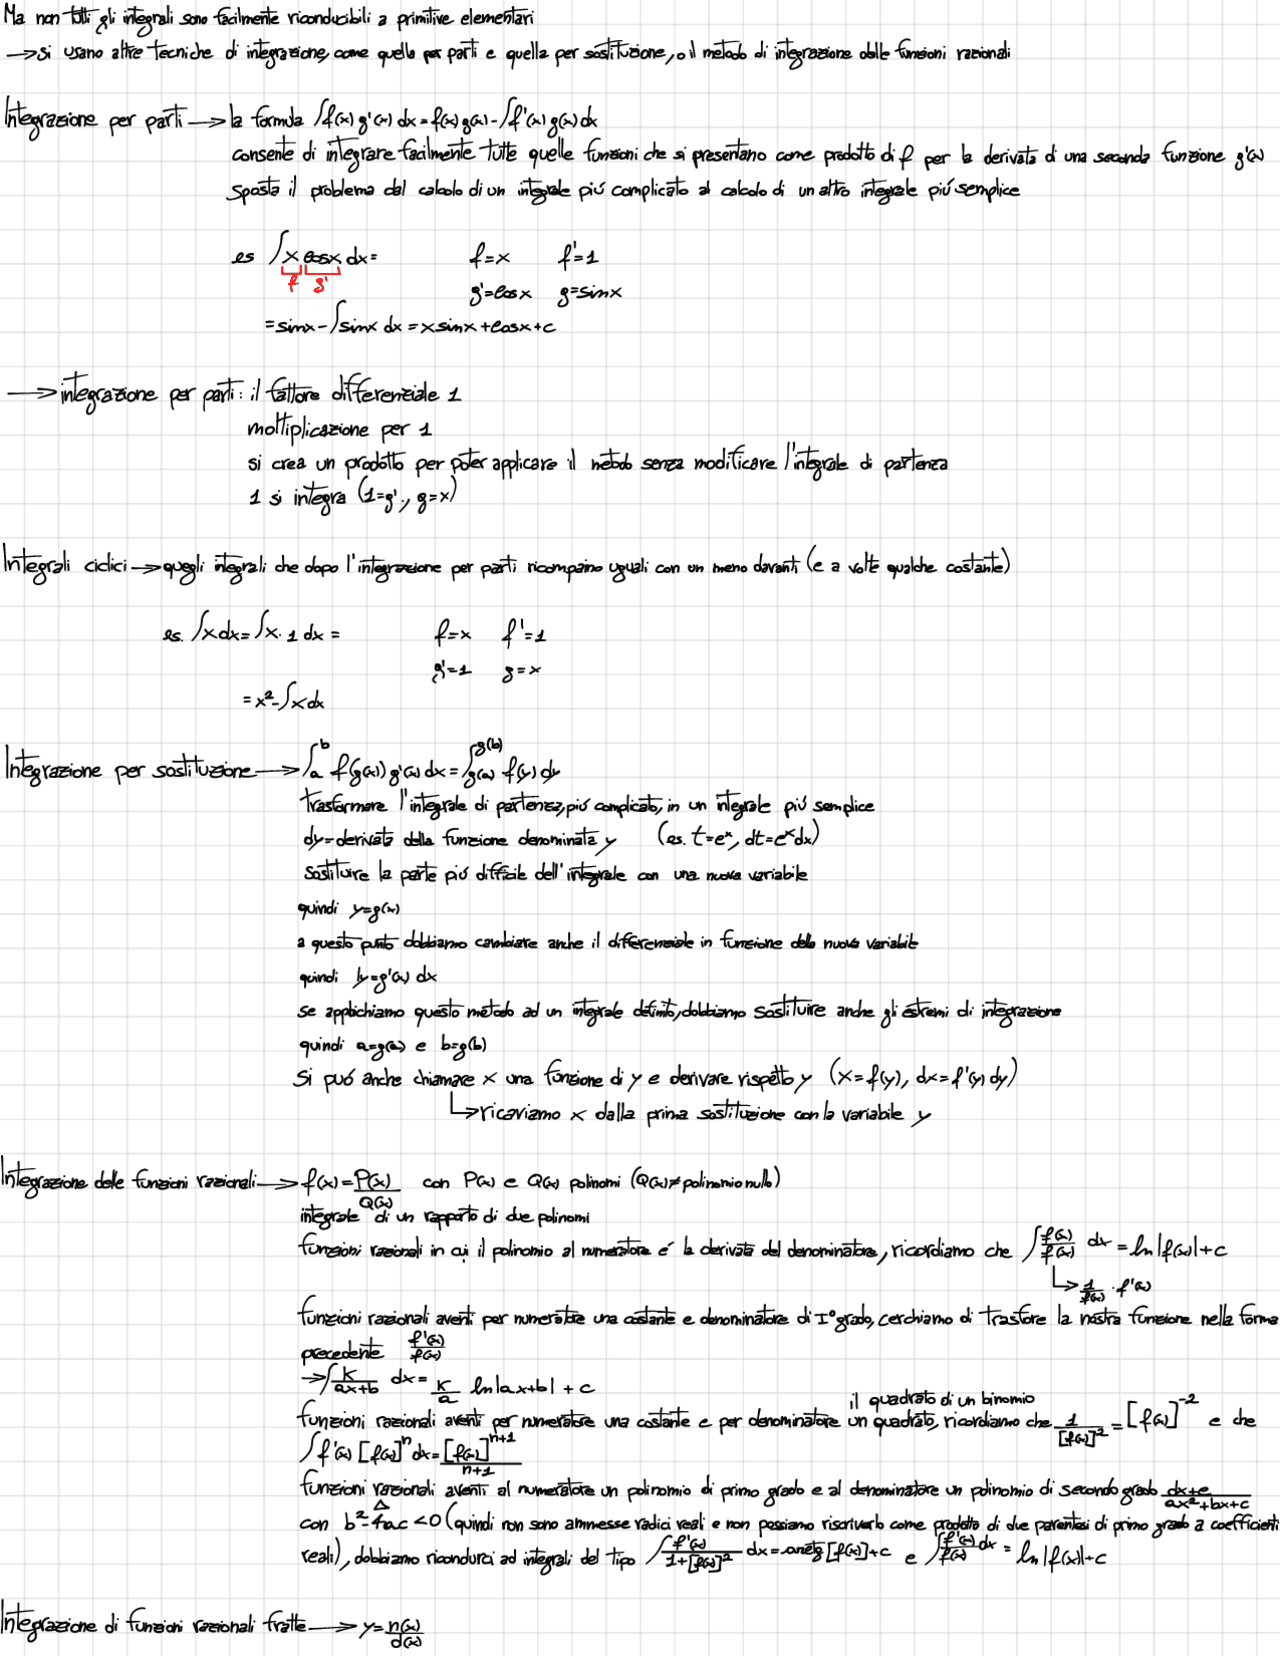 Ma non tutti gli integrali sono facilmente riconducibili a primitive elementari
→ si usano altre tecniche di integrazione, come quella per parti e quella per sostituzione, o il metodo di integrazione delle funzioni razionali
Integrazione per parti → la formula ∫f(x) g'(x) dx = f(x) g(x) - ∫f'(x) g(x) dx
consente di integrare facilmente tutte quelle funzioni che si presentano come prodotto di f per la derivata di una seconda funzione g'(x)
sposta il problema dal calcolo di un integrale più complicato al calcolo di un altro integrale più semplice
es ∫x cosx dx = f=x f'=1
f g'
g'=cosx g=sinx
=sinx-∫sinx dx = xsinx+cosx+c
→ integrazione per parti: il fattore differenziale 1
moltiplicazione per 1
si crea un prodotto per poter applicare il metodo senza modificare l'integrale di partenza
1 si integra (1=g', g=x)
Integrali ciclici → quegli integrali che dopo l'integrazione per parti ricompaino uguali con un meno davanti (e a volte qualche costante)
es. ∫x dx = ∫x·1 dx = f=x f'=1
g'=1 g=x
= x²-∫x dx
Integrazione per sostituzione → ∫ₐᵇ f(g(x)) g'(x) dx = ∫_{g(a)}^{g(b)} f(y) dy
trasformare l'integrale di partenza, più complicato, in un integrale più semplice
dy=derivata della funzione denominata y (es. t=eˣ, dt=eˣdx)
sostituire la parte più difficile dell'integrale con una nuova variabile
quindi y=g(x)
a questo punto dobbiamo cambiare anche il differenziale in funzione della nuova variabile
quindi dy=g'(x) dx
se applichiamo questo metodo ad un integrale definito, dobbiamo sostituire anche gli estremi di integrazione
quindi a=g(a) e b=g(b)
Si può anche chiamare x una funzione di y e derivare rispetto y (x=f(y), dx=f'(y) dy)
↳ ricaviamo x dalla prima sostituzione con la variabile y
Integrazione delle funzioni razionali → f(x)=P(x)/Q(x) con P(x) e Q(x) polinomi (Q(x)≠polinomio nullo)
integrale di un rapporto di due polinomi
funzioni razionali in cui il polinomio al numeratore é la derivata del denominatore, ricordiamo che ∫f'(x)/f(x) dx = ln|f(x)|+c
↳ 1/f(x) · f'(x)
funzioni razionali aventi per numeratore una costante e denominatore di I° grado, cerchiamo di trasfore la nostra funzione nella forma
precedente f'(x)/f(x)
→ ∫K/(ax+b) dx = K/a ln|ax+b| + c
il quadrato di un binomio
funzioni razionali aventi per numeratore una costante e per denominatore un quadrato, ricordiamo che 1/[f(x)]² = [f(x)]⁻² e che
∫f'(x) [f(x)]ⁿ dx = [f(x)]ⁿ⁺¹/(n+1)
funzioni razionali aventi al numeratore un polinomio di primo grado e al denominatore un polinomio di secondo grado (dx+e)/(ax²+bx+c)
Δ
con b²-4ac<0 (quindi non sono ammesse radici reali e non possiamo riscriverlo come prodotto di due parentesi di primo grado a coefficienti
reali), dobbiamo ricondurci ad integrali del tipo ∫f'(x)/(1+[f(x)]²) dx = arctg [f(x)]+c e ∫f'(x)/f(x) dx = ln|f(x)|+c
Integrazione di funzioni razionali fratte → y=n(x)/d(x)